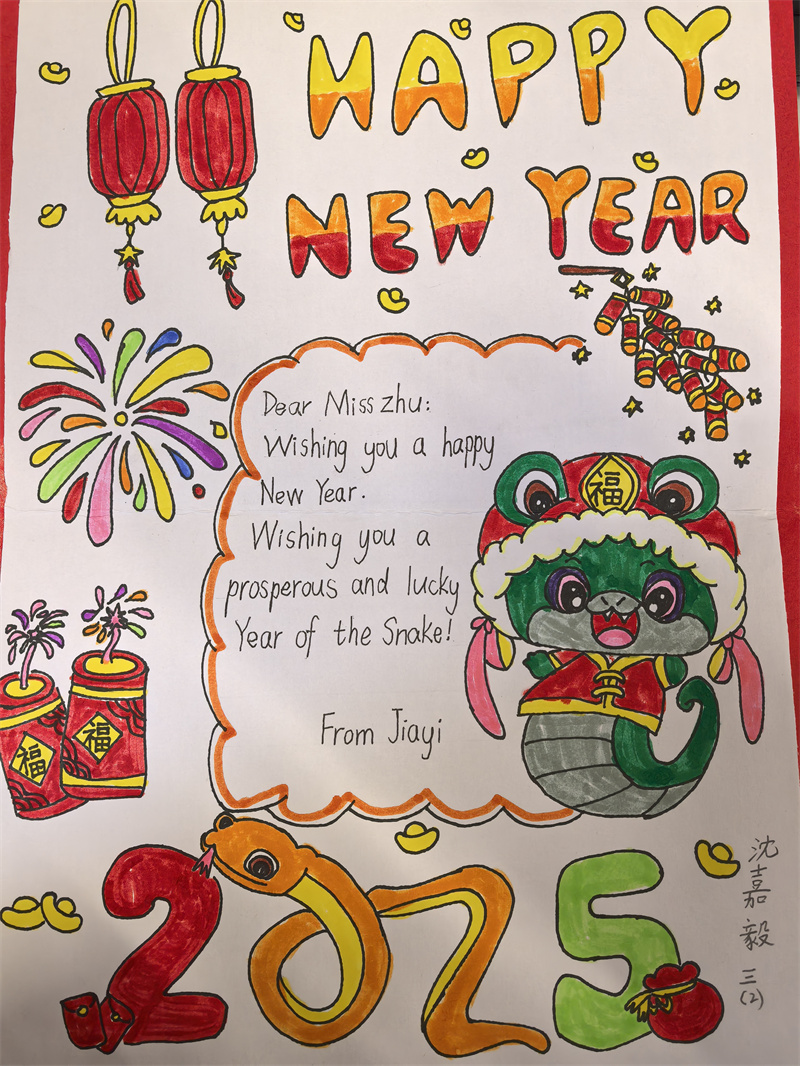 HAPPY
NEW YEAR
Dear Miss zhu:
Wishing you a happy
New Year.
Wishing you a
prosperous and lucky
Year of the Snake!
From Jiayi
福
福
福
2025
沈嘉毅 三(2)